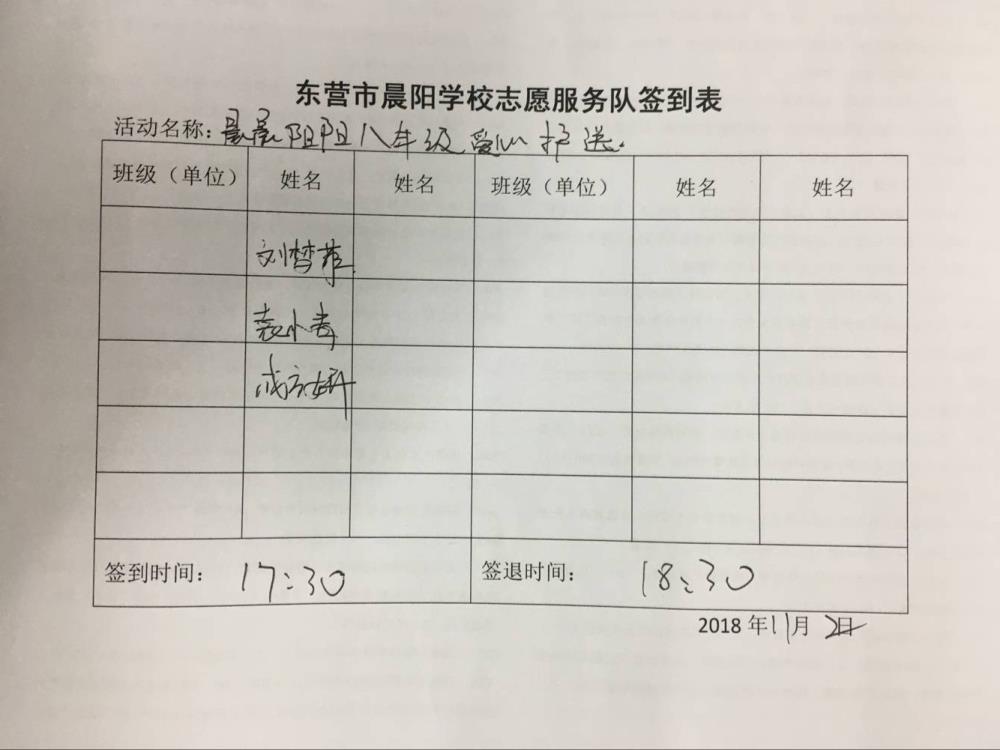 东营市晨阳学校志愿服务队签到表
活动名称：晨晨阳阳八年级爱心护送.
班级（单位） 姓名 姓名 班级（单位） 姓名 姓名
刘梦菲
袁小寿
成方妍
签到时间： 17:30 签退时间： 18:30
2018年11月2日